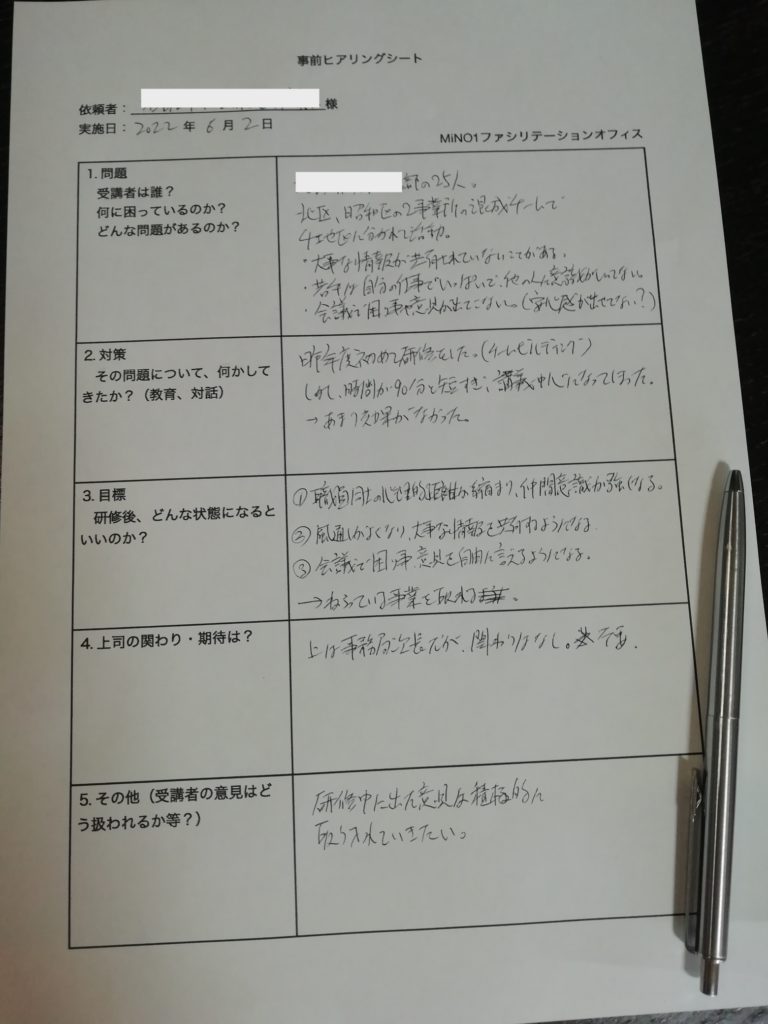 事前ヒアリングシート
依頼者： 様
実施日：2022年6月2日
MiNO1ファシリテーションオフィス
1. 問題
受講者は誰？
何に困っているのか？
どんな問題があるのか？
部の25人。
北区、昭和区の2事業所の混成チームで
4地区に分かれて活動。
・大事な情報が共有されていないことがある。
・若手は自分の仕事でいっぱいで、他の人に意識がいってない。
・会議で困り事や意見が出てこない。(安心感が出せてない？)
2. 対策
その問題について、何かして
きたか？（教育、対話）
昨年度初めて研修をした。(チームビルディング)
しかし、時間が90分と短すぎ、講義中心になってしまった。
→あまり効果がなかった。
3. 目標
研修後、どんな状態になると
いいのか？
①職員同士の心理的距離が縮まり、仲間意識が強くなる。
②風通しがよくなり、大事な情報を共有するようになる
③会議で困り事、意見を自由に言えるようになる。
→ねらっている事業を取れる。
4. 上司の関わり・期待は？
上は事務局次長だが、関わりはなし。
5. その他（受講者の意見はど
う扱われるか等？）
研修中に出た意見は積極的に
取り入れていきたい。